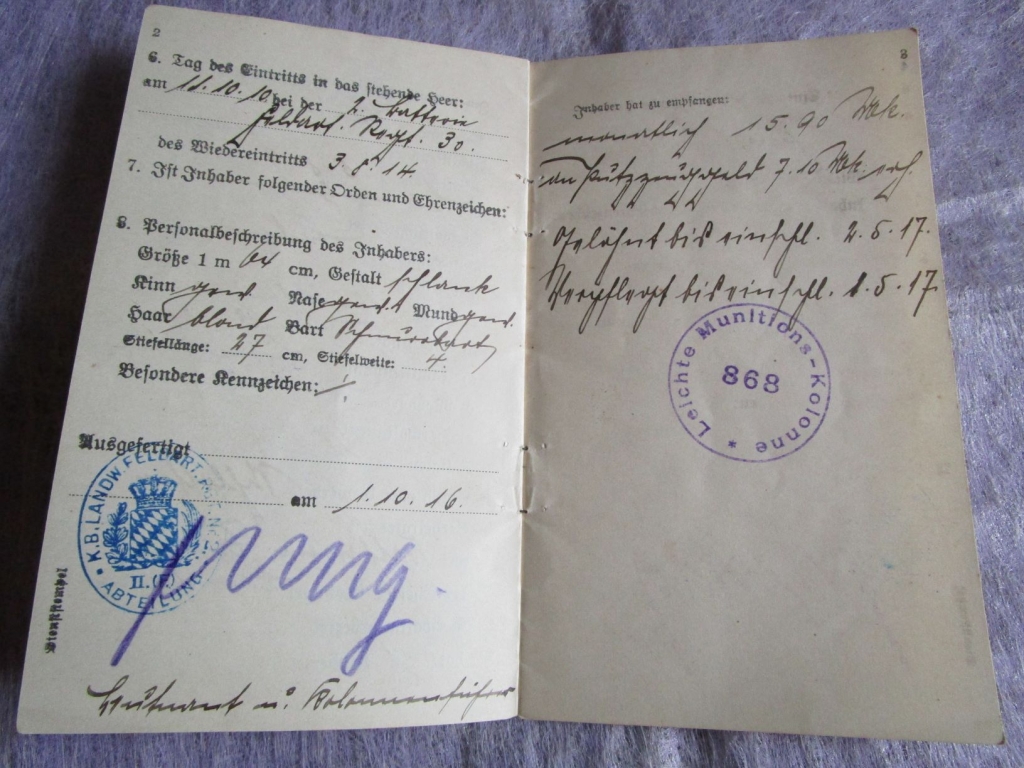 2
6. Tag des Eintritts in das stehende Heer:
am 11.10.10 bei der 2. Batterie
Feldart. Regt. 30.
des Wiedereintritts 3. 8. 14.
7. Ist Inhaber folgender Orden und Ehrenzeichen:
8. Personalbeschreibung des Inhabers:
Größe 1 m 64 cm, Gestalt schlank
Kinn gew. Nase gew. Mund gew.
Haar blond Bart Schnurrbart
Stiefellänge: 27 cm, Stiefelweite: 4.
Besondere Kennzeichen: /.
Ausgefertigt
am 1. 10. 16.
K.B. LANDW. FELDART.
II. (F)
ABTEILUNG
Leutnant u. Kolonnenführer
3
Inhaber hat zu empfangen:
monatlich 15.90 Mk.
an Putzzeuggeld 7.10 Mk.
Gelöhnt bis einschl. 2. 5. 17.
Verpflegt bis einschl. 1. 5. 17.
Leichte Munitions-Kolonne *
868